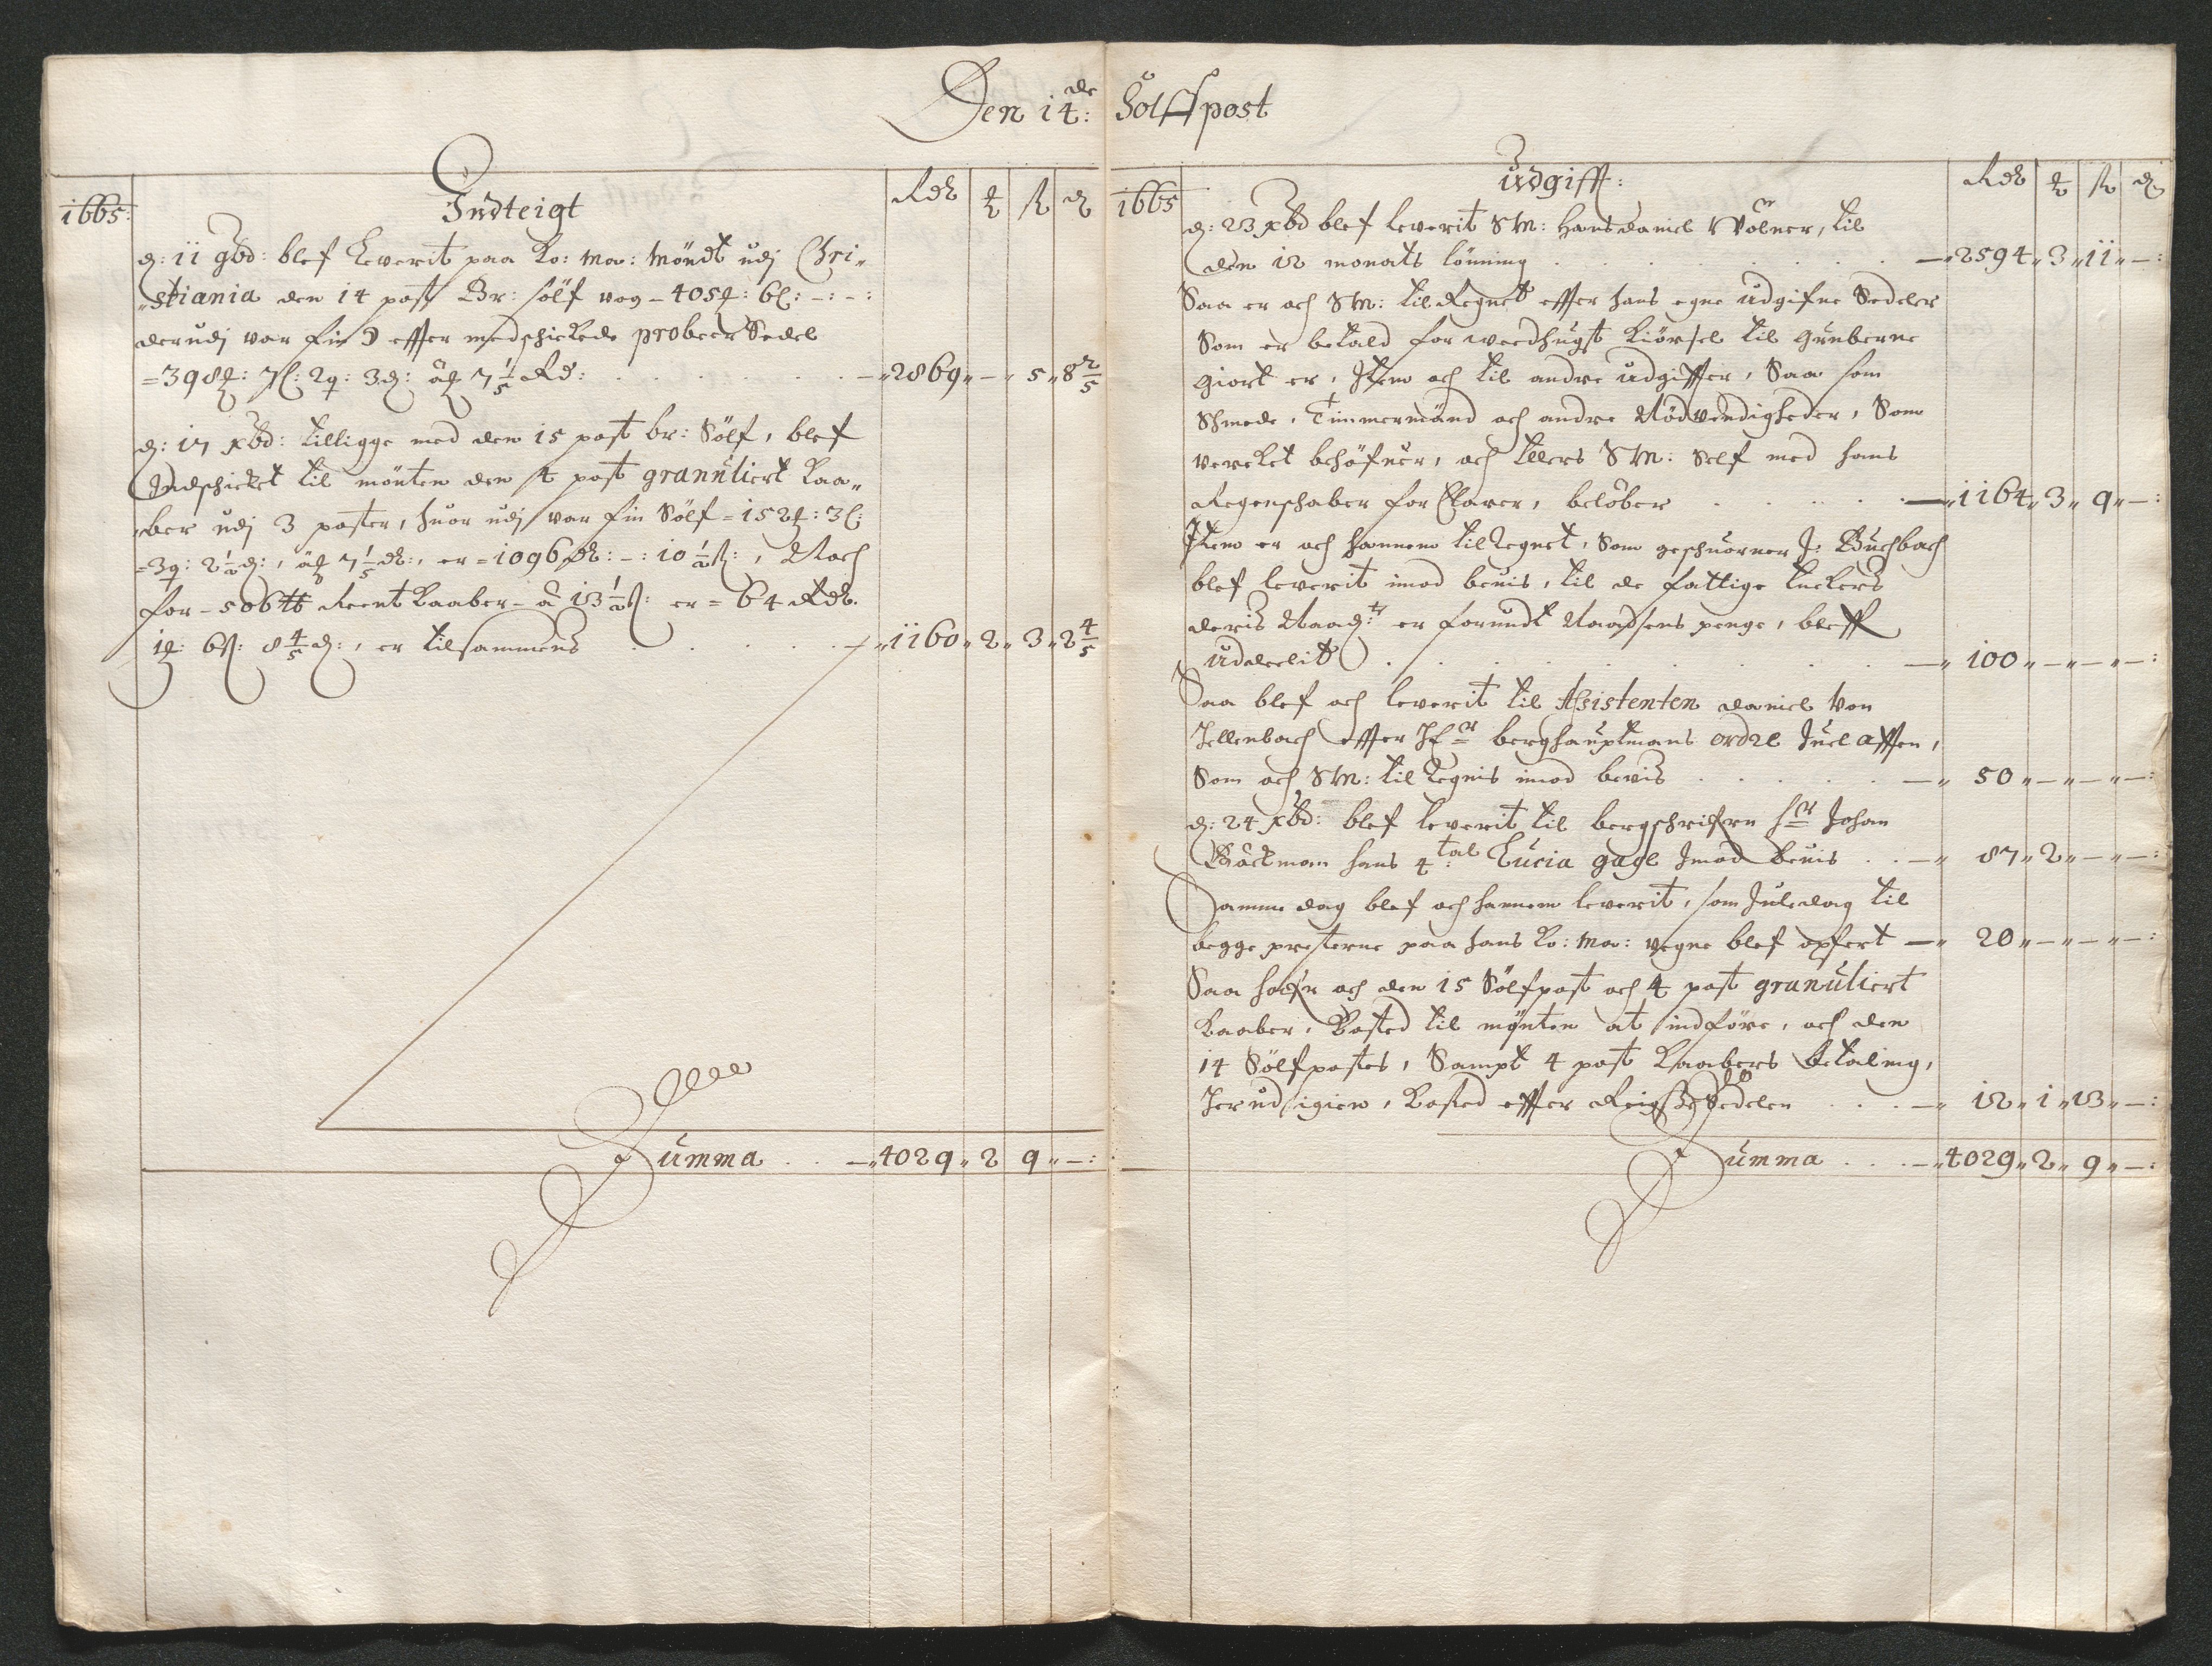 Den 14de: Sölffpost
1665:
Indteigt
Rdr
d: 11 9bd: blef Leverit paa Ko: Ma: Möndt udj Chri„
„stiania den 14 post Br: sölf vog – 405 : 6 : – : – :
derudj var fin effter medschickede probeer Sedel
= 398 : 7 : 2q : 3 : 7 1/5 Rd: — „ 2869 „ – „ 5 „ 8 2/5
d: 17 xbd: tilligge med den 15 post br: Sölf, blef
Indschicket til mönten den 4 post granuliert Kaa„
„ber udj 3 poster, huor udj var fin Sölf = 152 : 3 :
= 3q : 2 1/2 : , 7 1/5 dr:, er = 1096 dr: – : 10 1/2 ß: , Noch
for – 506 Reent Kaaber – â 13 1/2 ß: er = 64 Rdr.
1 : 6ß: 8 4/5 : , er tilsammens — „ 1160 „ 2 „ 3 „ 2 4/5
Summa — „ 4029 „ 2 9 „ – :
1665
Udgifft:
Rdr
d: 23 xbd blef leverit SM: Hans daniel Wölner, til
den 12 monats lönning — „ 2594 „ 3 „ 11 „ – :
Saa er och SM: til Regnet effter hans egne udgifne Sedeler
Som er betald for weedhugst kiörsel til Gruberne
giort er, Item och til andre udgiffter, Saa som
Schmede, Timmermänd och andre Nödvendigheder, Som
vercket behöfuer, och ellers SM: Self med hans
Regenschaber forclarer, belöber — „ 1164 „ 3 „ 9 „ – :
Item er och hannem tilregnet, Som geschuorner J: Buchbach
blef leverit imod beuis, til de fattige
deris er forundt Naadsens penge, bleff
uddeelit — „ 100 „ – „ – „ – :
Saa blef och leverit til Assistenten daniel von
Jellenbach effter Hr berghauptmans ordre Juel afften,
Som och SM: til Regnis imod bevis — „ 50 „ – „ – „ – :
d: 24 xbd: blef leverit til bergschrifern Hr Johan
Bäckman hans 4tal: Lucia gage Imod beuis — „ 87 „ 2 „ – „ – :
Samme dag blef och hannem leverit, som Juledag til
begge presterne paa hans Ko: Ma: vegne blef opfert — „ 20 „ – „ – „ – :
Saa hafr och den 15 Sölfpost och 4 post granuliert
Kaaber, Kosted til mönten at indföre, och den
14 Sölfpostes, Sampt 4 post Kaabers betaling,
herud igien, Kosted effter Reigsse Sedelen — „ 12 „ 1 „ 13 „ – :
Summa — „ 4029 „ 2 „ 9 „ – :